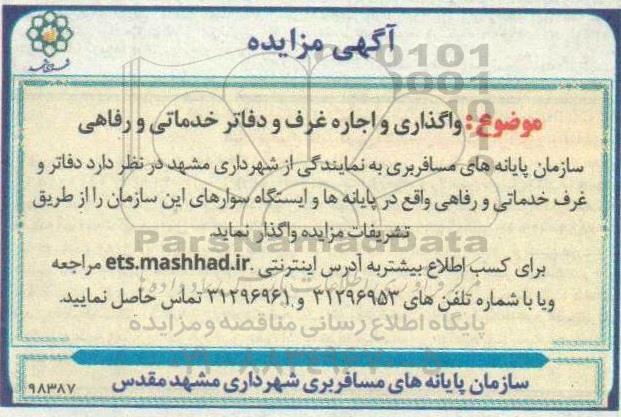 آگهی مزایده
موضوع: واگذاری و اجاره غرف و دفاتر خدماتی و رفاهی
سازمان پایانه های مسافربری به نمایندگی از شهرداری مشهد در نظر دارد دفاتر و
غرف خدماتی و رفاهی واقع در پایانه ها و ایستگاه سوارهای این سازمان را از طریق
تشریفات مزایده واگذار نماید
ParsNamadData
برای کسب اطلاع بیشتر به آدرس اینترنتی ets.mashhad.ir مراجعه
و یا با شماره تلفن های ۳۱۲۹۶۹۵۳ و ۳۱۲۹۶۹۶۱ تماس حاصل نمایید.
پایگاه اطلاع رسانی مناقصه و مزایده
سازمان پایانه های مسافربری شهرداری مشهد مقدس
۹۸۳۸۷